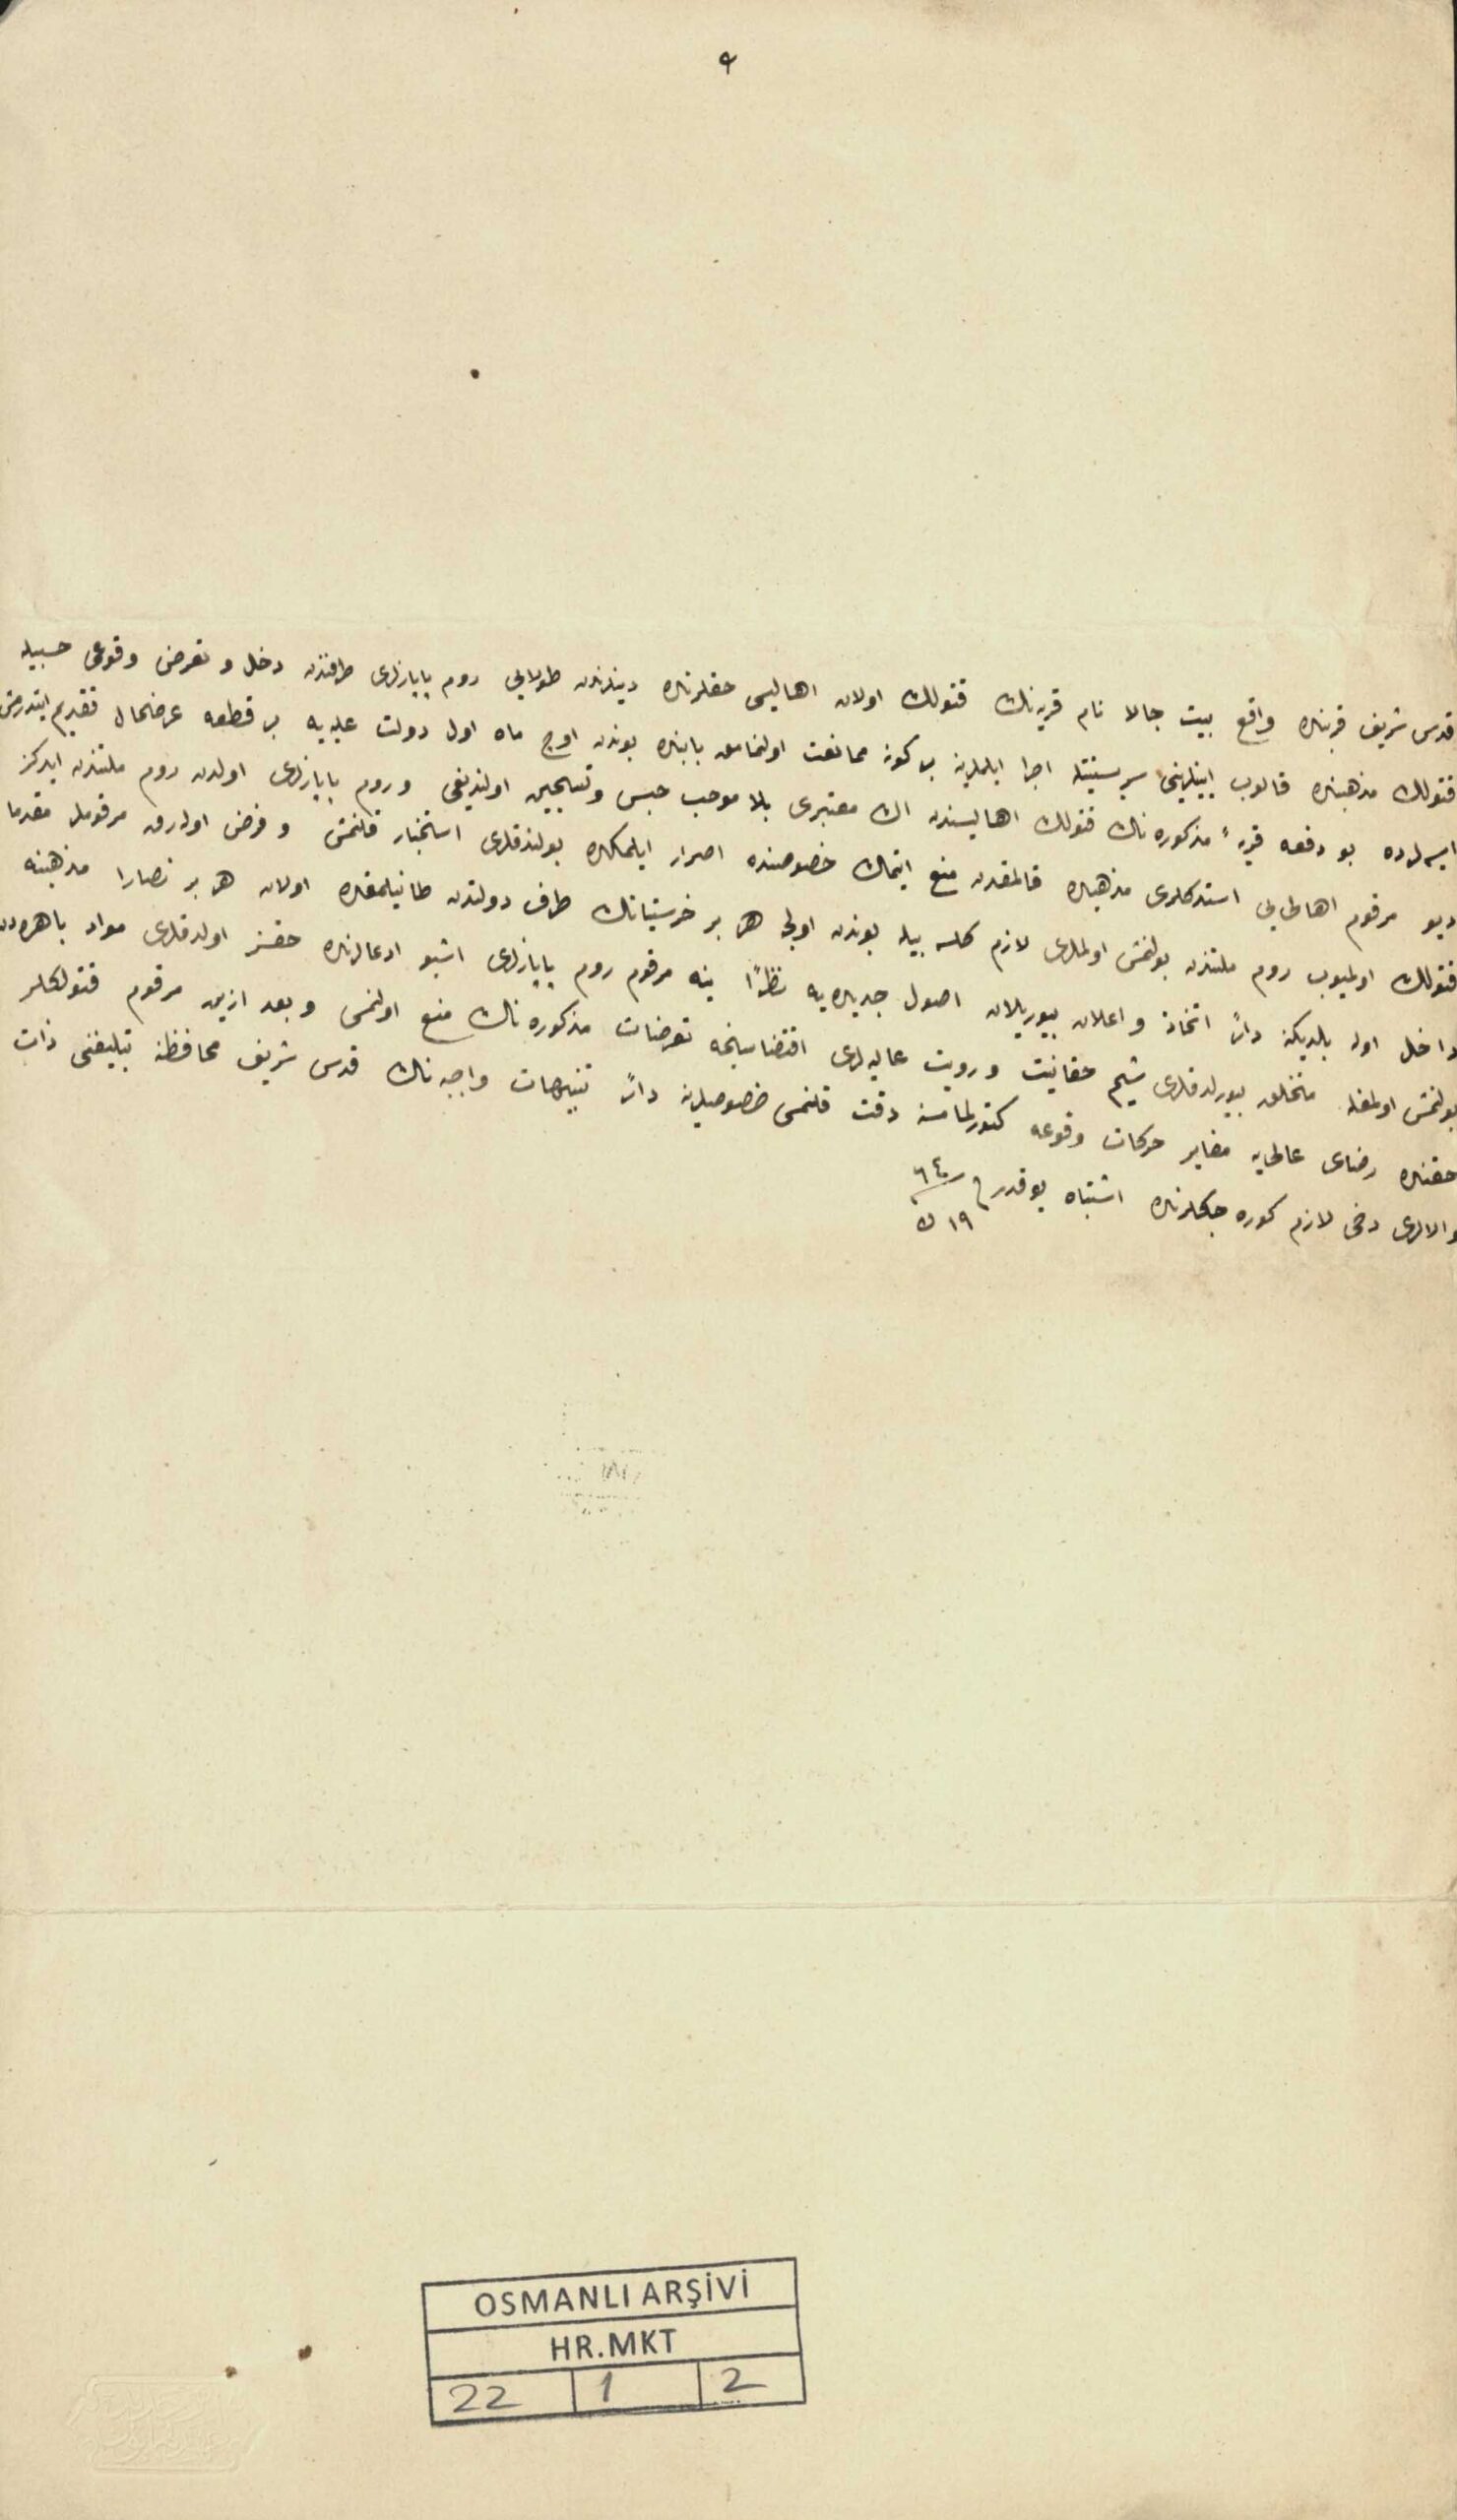 قدس شريف قربنده واقع بيت جالا نام قريه نك قتولك اولان اهاليسى حقلرنده دينلرندن طولايى روم پاپازلرى طرفندن دخل و تعرض وقوعى حسبيله
قتولك مذهبنده قالوب آيينلرينى سربستيتله اجرا ايلملرينه بر كونه ممانعت اولنمامق بابنده بوندن اوج ماه اول دولت عليه يه بر قطعه عرضحال تقديم ايتدرمش
ايسه لرده بو دفعه قريهٔ مذكوره نك قتولك اهاليسندن اك معتبرى بلا موجب حبس و تسجين اولنديغى و روم پاپازلرى اولدن روم ملتندن ايدكز
ديو مرقوم اهالى يى استدكلرى مذهبده قالمقدن منع ايتمك خصوصنده اصرار ايلمكده بولندقلرى استخبار قلنمش و فرض اولنارق مرقوملر مقدما
قتولك اولميوب روم ملتندن بولنمش اولملرى لازم كلسه بيله بوندن اولجه هر بر خرستيانك طرف دولتدن طانيلمقده اولان هر بر نصارا مذهبنه
داخل اوله بلديكنه دائر اتخاذ و اعلان بيوريلان اصول جديده يه نظرًا ينه مرقوم روم پاپازلرى اشبو ادعالرنده حقسز اولدقلرى مواد باهره دن
بولنمش اولمغله متخلق بيورلدقلرى شيم حقانيت و رويت عاليه لرى اقتضاسنجه تعرضات مذكوره نك منع اولنمسى و بعد ازين مرقوم قتولكلر
حقنده رضاى عالى يه مغاير حركات وقوعه كتورلمامسنه دقت قلنمسى خصوصلرينه دائر تنبيهات واجبه نك قدس شريف محافظنه تبليغنى ذات
والالرى دخى لازم كوره جكلرنده اشتباه يوقدر ٦٤
١٩ ن
OSMANLI ARŞİVİ
HR.MKT
22 1 2